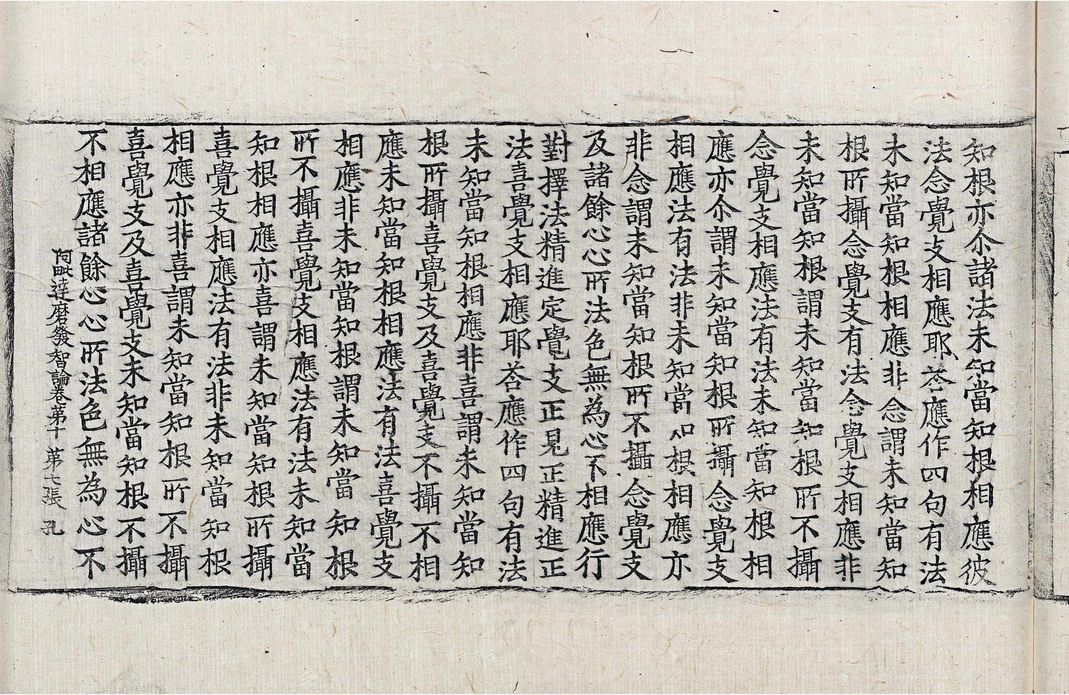 知根亦尒諸法未知當知根相應彼
法念覺支相應耶荅應作四句有法
未知當知根相應非念謂未知當知
根所攝念覺支有法念覺支相應非
未知當知根謂未知當知根所不攝
念覺支相應法有法未知當知根相
應亦尒謂未知當知根所攝念覺支
相應法有法非未知當知根相應亦
非念謂未知當知根所不攝念覺支
及諸餘心心所法色無為心不相應行
對擇法精進定覺支正見正精進正
法喜覺支相應耶荅應作四句有法
未知當知根相應非喜謂未知當知
根所攝喜覺支及喜覺支不攝不相
應未知當知根相應法有法喜覺支
相應非未知當知根謂未知當知根
所不攝喜覺支相應法有法未知當
知根相應亦喜謂未知當知根所攝
喜覺支相應法有法非未知當知根
相應亦非喜謂未知當知根所不攝
喜覺支及喜覺支未知當知根不攝
不相應諸餘心心所法色無為心不
阿毗達磨發智論卷第十 第七張 孔